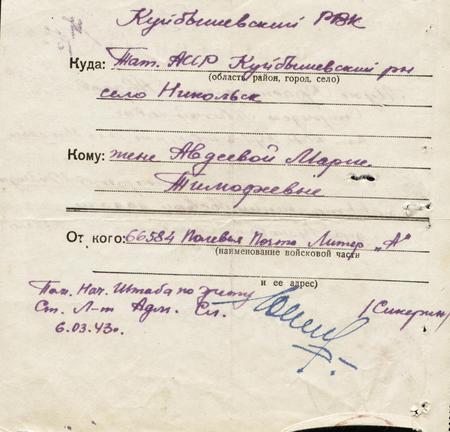 Куйбышевский РВК
Куда: Тат. АССР Куйбышевский р-н
(область, район, город, село)
село Никольск
Кому: жене Авдеевой Марие
Тимофеевне
От кого: 66584 Полевая Почта Литер „А"
(наименование войсковой части
и ее адрес)
Пом. Нач. Штаба по учету
Ст. Л-т Адм. Сл. /Сикерин/
6.03.43г.